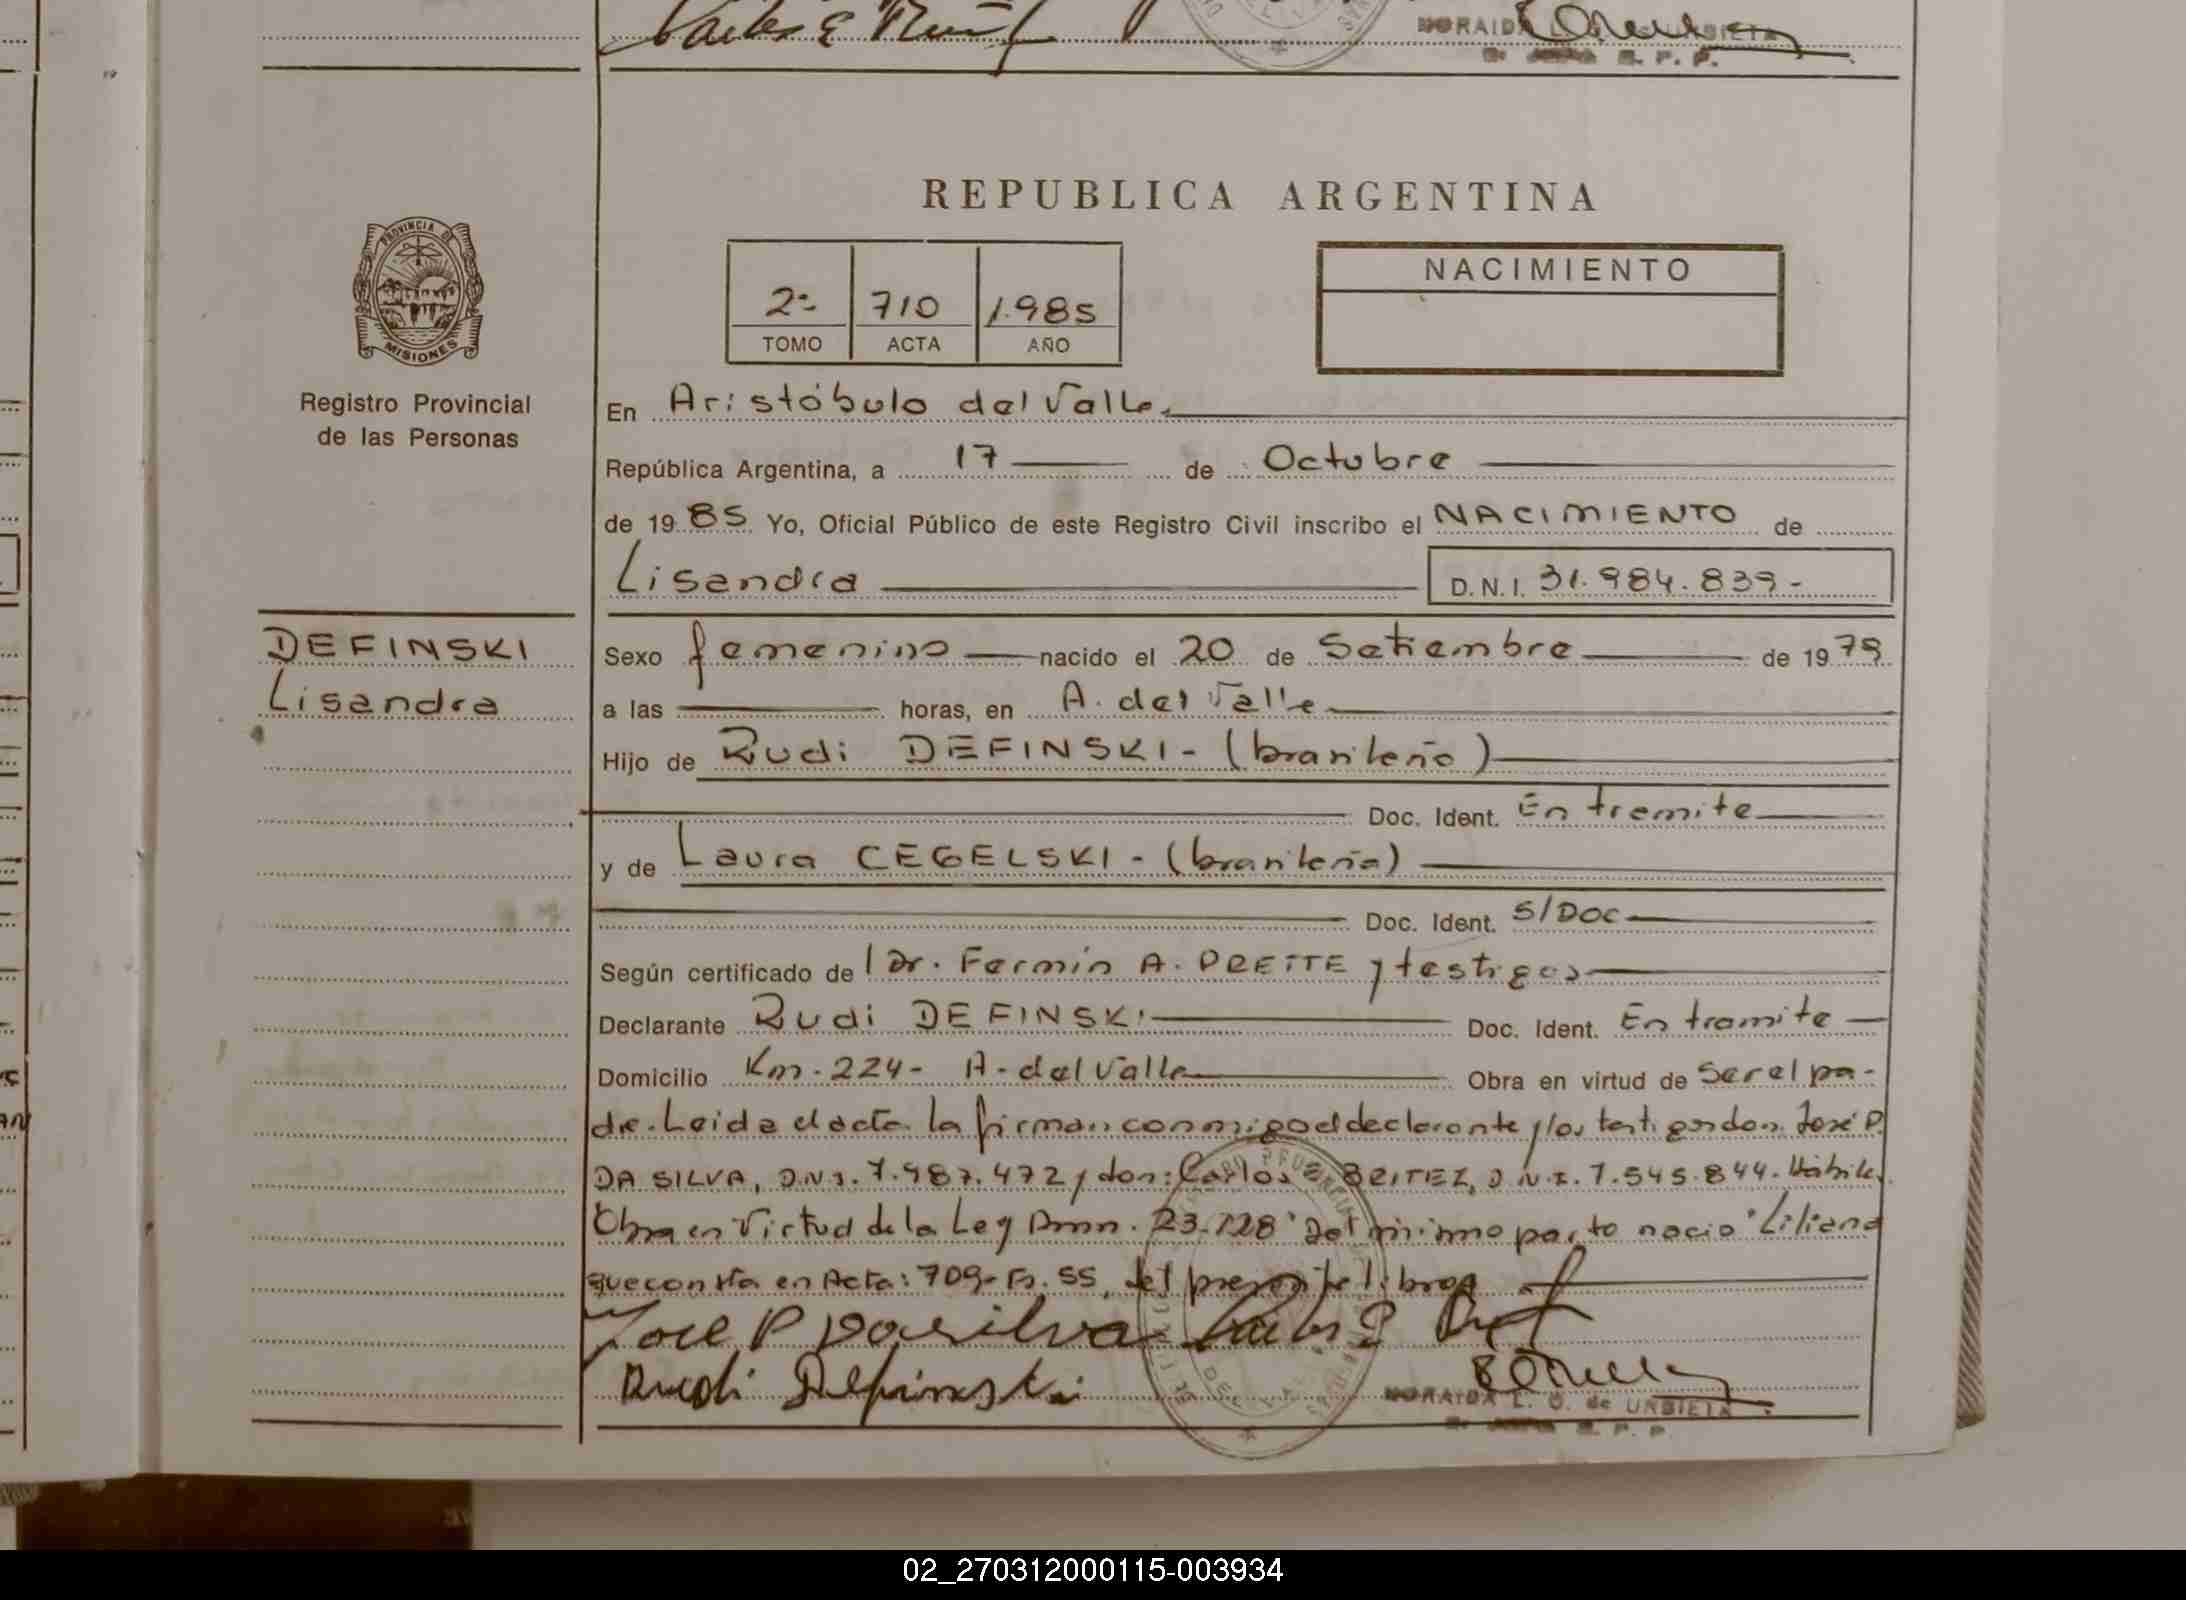 Carlos E
NORAIDA
REPUBLICA ARGENTINA
PROVINCIA DE
MISIONES
Registro Provincial
de las Personas
2º 710 1.985
TOMO ACTA AÑO
NACIMIENTO
En Aristóbulo del Valle.
República Argentina, a 17 de Octubre
de 19 85 Yo, Oficial Público de este Registro Civil inscribo el NACIMIENTO de
Lisandra D.N.I. 31.984.839-
DEFINSKI
Lisandra
Sexo femenino nacido el 20 de Setiembre de 19 79
a las horas, en A. del Valle
Hijo de Rudi DEFINSKI - (brasileño)
Doc. Ident. En tremite
y de Laura CEGELSKI - (brasileña)
Doc. Ident. S/DOC
Según certificado de l Dr. Fermín A. PREITE y testigos
Declarante Rudi DEFINSKI Doc. Ident. En tramite
Domicilio Km-224- A-del Valle Obra en virtud de Ser el pa-
dre. Leida el acta la firman conmigo el declarante y los testigos don José P.
DA SILVA, D.N.I. 7.987.472 y don: Carlos E BRITEZ, D.N.I. 7.545.844. Hábiles.
Obra en Virtud de la Ley 23.128 Del mismo parto nacio "Liliana
que consta en Acta: 709- Fo. 55, del presente libro
Jose P Dasilva Carlos E
Rudi Definski
NORAIDA L. O. de URBIETA
02_270312000115-003934